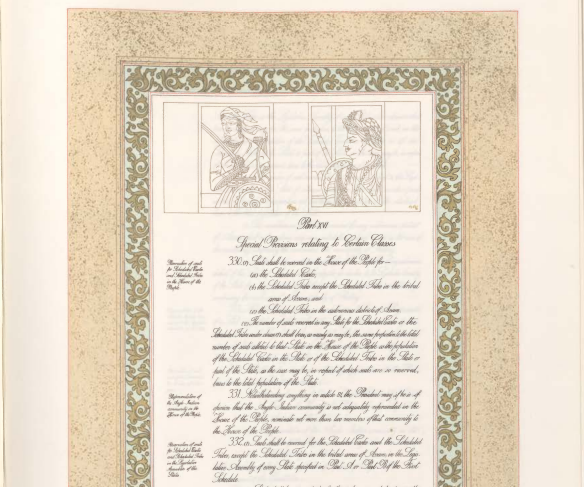 Part XVI
Special Provisions relating to Certain Classes
Reservation of seats
for Scheduled Castes
and Scheduled Tribes
in the House of the
People.
330. (1) Seats shall be reserved in the House of the People for —
(a) the Scheduled Castes;
(b) the Scheduled Tribes except the Scheduled Tribes in the tribal
areas of Assam; and
(c) the Scheduled Tribes in the autonomous districts of Assam.
(2) The number of seats reserved in any State for the Scheduled Castes or the
Scheduled Tribes under clause (1) shall bear, as nearly as may be, the same proportion to the total
number of seats allotted to that State in the House of the People as the population
of the Scheduled Castes in the State or of the Scheduled Tribes in the State or
part of the State, as the case may be, in respect of which seats are so reserved,
bears to the total population of the State.
Representation of
the Anglo-Indian
community in the
House of the People.
331. Notwithstanding anything in article 81, the President may, if he is of
opinion that the Anglo-Indian community is not adequately represented in the
House of the People, nominate not more than two members of that community to
the House of the People.
Reservation of seats
for Scheduled Castes
and Scheduled Tribes
in the Legislative
Assemblies of the
States.
332. (1) Seats shall be reserved for the Scheduled Castes and the Scheduled
Tribes, except the Scheduled Tribes in the tribal areas of Assam, in the Legis-
lative Assembly of every State specified in Part A or Part B of the First
Schedule.